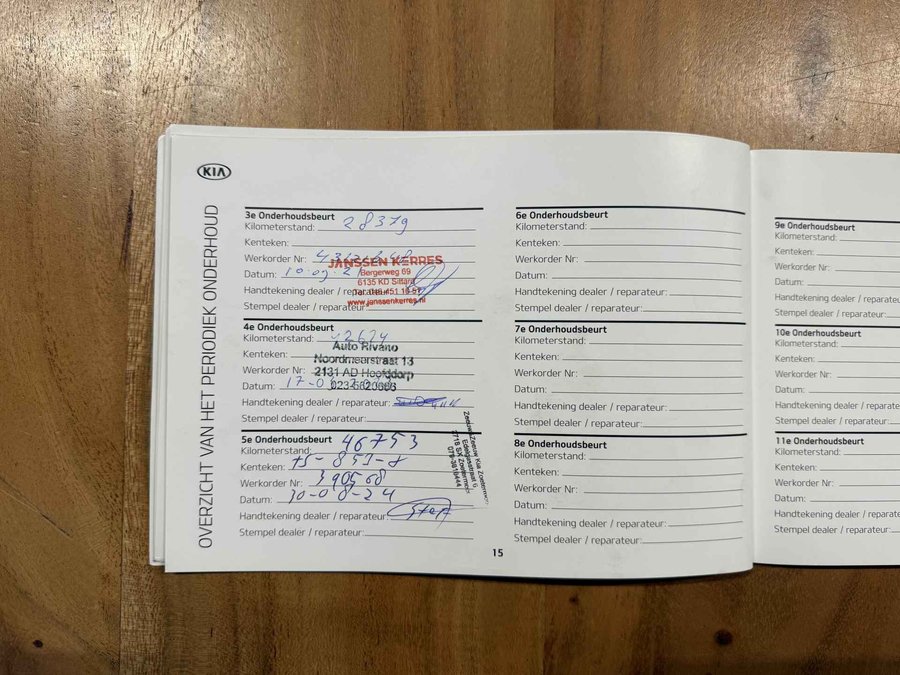 KIA
OVERZICHT VAN HET PERIODIEK ONDERHOUD
3e Onderhoudsbeurt
Kilometerstand: 28379
Kenteken:
Werkorder Nr:
Datum: 10.09.21
Handtekening dealer / reparateur:
Stempel dealer / reparateur:
JANSSEN KERRES
Bergerweg 69
6135 KD Sittard
www.janssenkerres.nl
4e Onderhoudsbeurt
Kilometerstand:
Kenteken:
Werkorder Nr:
Datum: 17-0
Handtekening dealer / reparateur:
Stempel dealer / reparateur:
Auto Rivano
Noordmeerstraat 13
2131 AD Hoofddorp
023-5620666
5e Onderhoudsbeurt
Kilometerstand: 46753
Kenteken:
Werkorder Nr: 390568
Datum: 30-08-24
Handtekening dealer / reparateur:
Stempel dealer / reparateur:
Zeeuw & Zeeuw Kia Zoetermeer
Edelgasstraat 6
2718 SX Zoetermeer
15
6e Onderhoudsbeurt
Kilometerstand:
Kenteken:
Werkorder Nr:
Datum:
Handtekening dealer / reparateur:
Stempel dealer / reparateur:
7e Onderhoudsbeurt
Kilometerstand:
Kenteken:
Werkorder Nr:
Datum:
Handtekening dealer / reparateur:
Stempel dealer / reparateur:
8e Onderhoudsbeurt
Kilometerstand:
Kenteken:
Werkorder Nr:
Datum:
Handtekening dealer / reparateur:
Stempel dealer / reparateur:
9e Onderhoudsbeurt
Kilometerstand:
Kenteken:
Werkorder Nr:
Datum:
Handtekening dealer / reparateu
Stempel dealer / reparateur:
10e Onderhoudsbeurt
Kilometerstand:
Kenteken:
Werkorder Nr:
Datum:
Handtekening dealer / reparate
Stempel dealer / reparateur:
11e Onderhoudsbeurt
Kilometerstand:
Kenteken:
Werkorder Nr:
Datum:
Handtekening dealer / reparat
Stempel dealer / reparateur: